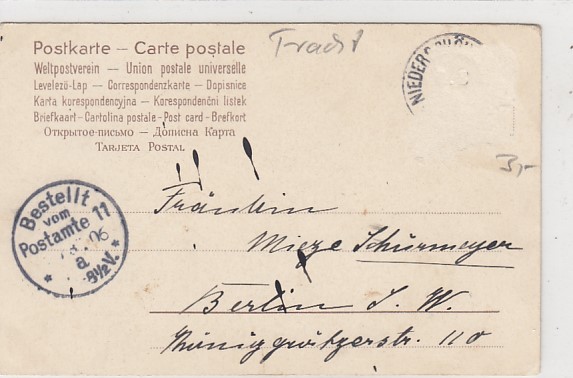 Postkarte — Carte postale
Weltpostverein — Union postale universelle
Levelező-Lap — Correspondenzkarte — Dopisnice
Karta korespondencyjna — Korespondenční listek
Briefkaart - Cartolina postale - Post card - Brefkort
Открытое письмо — Дописна Карта
Tarjeta Postal
Tracht
3,-
Bestellt
vom
Postamte 11
06
a
8½V.
Fräulein
Mieze Schürmeyer
Berlin S. W.
Königgrätzerstr. 110